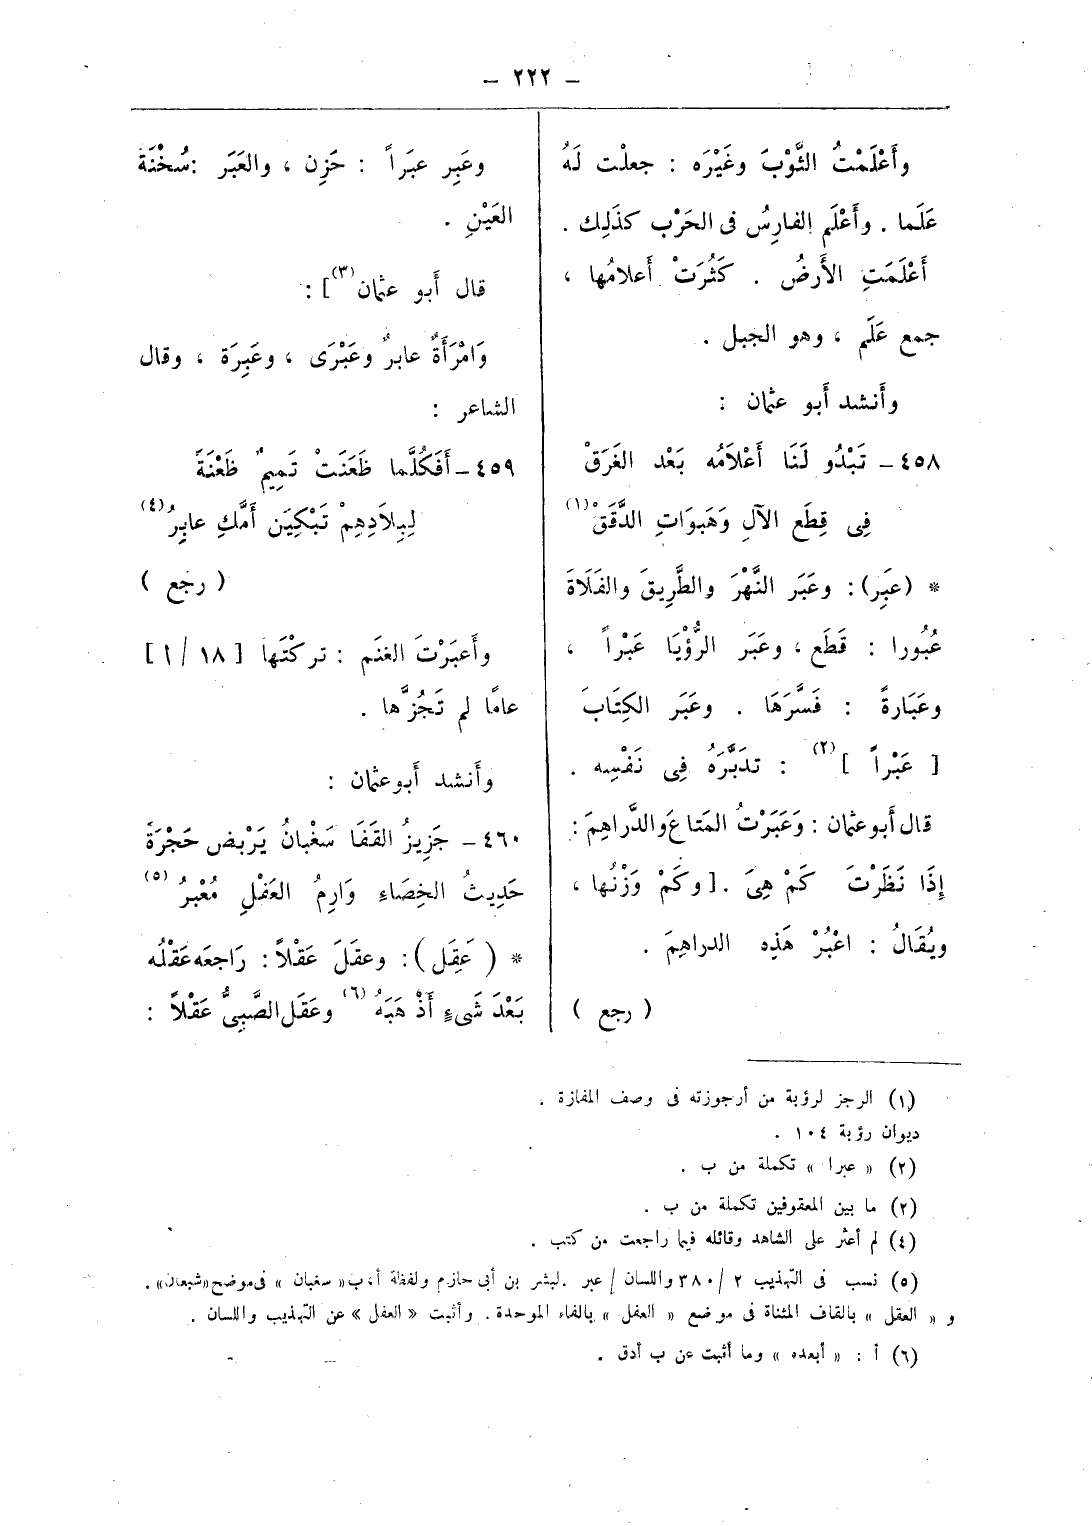 – ٢٢٢ –
وأَعْلَمْتُ الثَّوْبَ وغَيْرَه : جعلْت لَهُ
عَلَما . وأَعْلَم الفارِسُ فى الحَرْب كذَلِك .
أَعْلَمَتِ الأَرضُ . كَثُرَتْ أَعلامُها ،
جمع عَلَم ، وهو الجبل .
وأَنشد أَبو عثمان :
٤٥٨ – تَبْدُو لَنَا أَعْلاَمُه بَعْد الغَرَقْ
فِى قِطَع الآلِ وَهَبوَاتِ الدَّقَقْ(١)
* (عَبِر) : وعَبَر النَّهْرَ والطَّرِيقَ والفَلَاةَ
عُبُورا : قَطَع ، وعَبَر الرُّؤْيَا عَبْراً ،
وعَبَارةً : فَسَّرَهَا . وعَبَر الكِتَابَ
[ عَبْراً ](٢) : تدَبَّرَهُ فِى نَفْسِه .
قال أَبو عثمان : وَعَبَرْتُ المَتاعَ والدَّراهِمَ :
إِذَا نَظَرْتَ كَمْ هِىَ . [ وكَمْ وَزْنُها ،
ويُقَالُ : اعْبُرْ هَذِه الدراهِمَ .
( رجع )
وعَبِر عبَراً : حَزِن ، والعَبَر : سُخْنَة
العَيْنِ .
قال أَبو عثمان(٣) ] :
وَامْرَأَةٌ عابرٌ وعَبْرَى ، وعَبِرَة ، وقال
الشاعر :
٤٥٩ – أَفَكُلَّما ظَعَنَتْ تَمِيمٌ ظَعْنَةً
لِبِلاَدِهِمْ تَبْكِيَن أَمَّكِ عابِرُ(٤)
( رجع )
وأَعبَرْتَ الغنَم : تركْتَها [ ١٨ / أ ]
عامًا لم تَجُزَّها .
وأَنشد أَبو عثمان :
٤٦٠ – جَزِيزُ القَفَا سَغْبانُ يَرْبض حَجْرَةً
حَدِيثُ الخِصَاءِ وَارِمُ العَفْلِ مُعْبرُ(٥)
* ( عَقِل ) : وعقَلَ عَقْلاً : رَاجعَه عَقْلُه
بَعْدَ شَىءٍ أَذْهَبَهُ(٦) وعَقَل الصَّبِىُّ عَقْلاً :
(١) الرجز لرؤبة من أرجوزته فى وصف المفازة .
ديوان رؤبة ١٠٤ .
(٢) « عبرا » تكملة من ب .
(٢) ما بين المعقوفين تكملة من ب .
(٤) لم أعثر على الشاهد وقائله فيما راجعت من كتب .
(٥) نسب فى التهذيب ٢ / ٣٨٠ واللسان / عبر . لبشر بن أبى حازم ولفظة أ ، ب « سغبان » فى موضع « شبعان » .
و « العقل » بالقاف المثناة فى موضع « العفل » بالفاء الموحدة . وأثبت « العفل » عن التهذيب واللسان .
(٦) أ : « أبعده » وما أثبت عن ب أدق .